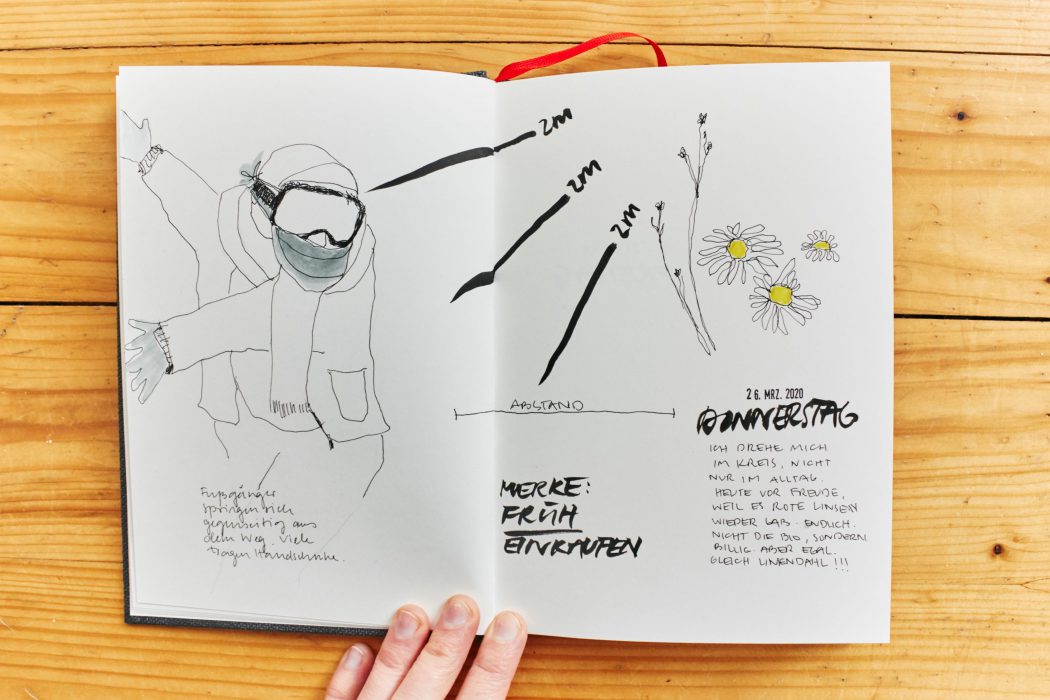 Fußgänger
springen sich
gegenseitig aus
dem Weg. Viele
tragen Handschuhe.
2M
2M
2M
ABSTAND
MERKE:
FRÜH
EINKAUFEN
26. MRZ. 2020
DONNERSTAG
ICH DREHE MICH
IM KREIS, NICHT
NUR IM ALLTAG.
HEUTE VOR FREUDE,
WEIL ES ROTE LINSEN
WIEDER GAB. ENDLICH.
NICHT DIE BIO, SONDERN
BILLIG. ABER EGAL.
GLEICH LINSENDAHL!!!